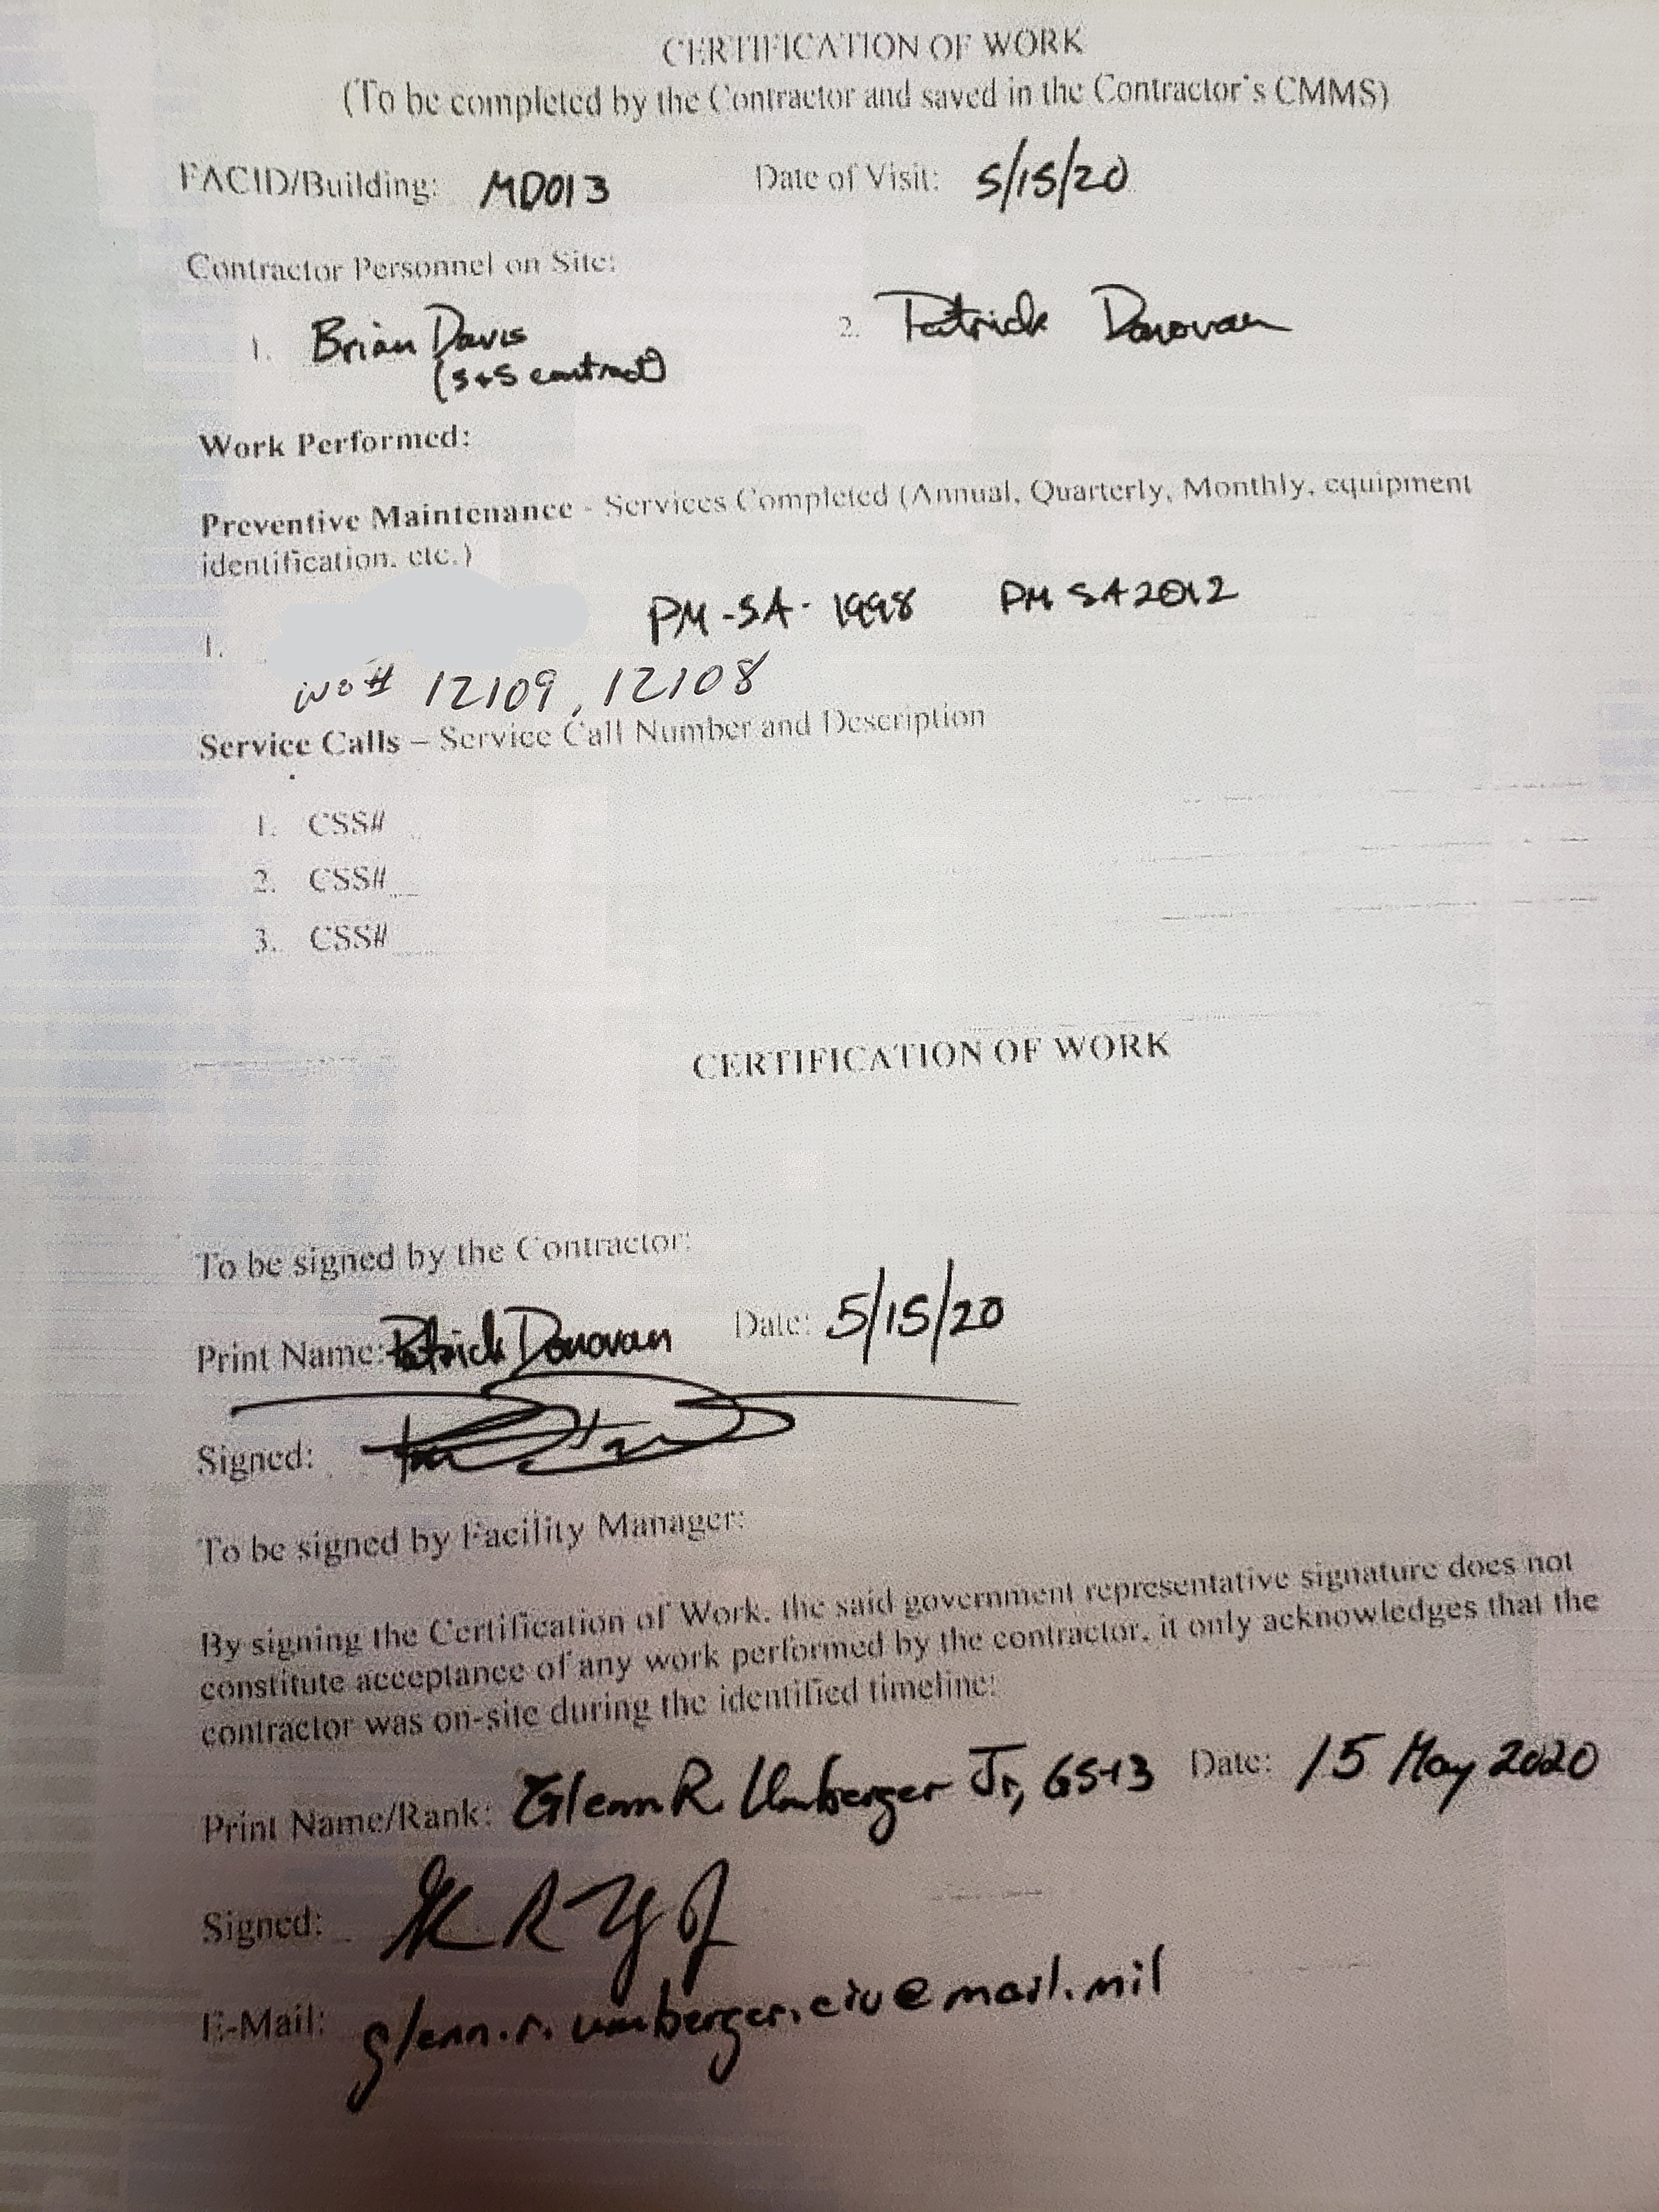 CERTIFICATION OF WORK
(To be completed by the Contractor and saved in the Contractor's CMMS)
FACID/Building: MD013 Date of Visit: 5/15/20
Contractor Personnel on Site:
1. Brian Davis 2. Patrick Donovan
(S+S contract)
Work Performed:
Preventive Maintenance - Services Completed (Annual, Quarterly, Monthly, equipment
identification, etc.)
1. PM-SA-1998 PM SA2012
WO# 12109, 12108
Service Calls – Service Call Number and Description
1. CSS#
2. CSS#
3. CSS#
CERTIFICATION OF WORK
To be signed by the Contractor:
Print Name: Patrick Donovan Date: 5/15/20
Signed:
To be signed by Facility Manager:
By signing the Certification of Work, the said government representative signature does not
constitute acceptance of any work performed by the contractor, it only acknowledges that the
contractor was on-site during the identified timeline:
Print Name/Rank: Glenn R. Umberger Jr, GS-13 Date: 15 May 2020
Signed:
E-Mail: glenn.r.umberger.civ@mail.mil